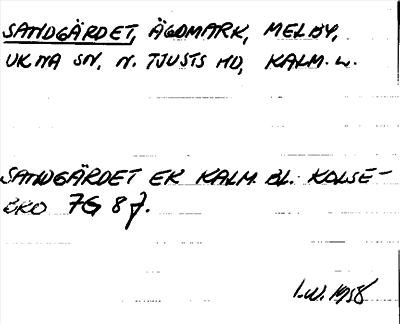 SANDGÄRDET, ÄGOMARK, MELBY,
UKNA SN, N. TJUSTS HD, KALM. L.
SANDGÄRDET EK KALM. BL. KOLSE-
BRO 7G 8f.
I.W. 1958